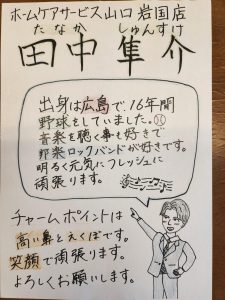 ホームケアサービス山口 岩国店
たなか しゅんすけ
田中 隼介
出身は広島で、16年間
野球をしていました。
音楽を聴く事も好きで
邦楽ロックバンドが好きです。
明るく元気にフレッシュに
頑張ります。
チャームポイントは
高い鼻とえくぼです。
笑顔で頑張ります。
よろしくお願いします。